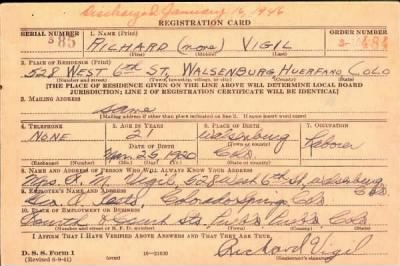 Discharged January 16, 1946
REGISTRATION CARD
SERIAL NUMBER 1. NAME (Print) ORDER NUMBER
S 85 RICHARD (none) VIGIL S- 484
(First) (Middle) (Last)
2. PLACE OF RESIDENCE (Print)
528 WEST 6th ST. WALSENBURG, HUERFANO COLO
(Number and street) (Town, township, village, or city) (County) (State)
[THE PLACE OF RESIDENCE GIVEN ON THE LINE ABOVE WILL DETERMINE LOCAL BOARD
JURISDICTION; LINE 2 OF REGISTRATION CERTIFICATE WILL BE IDENTICAL]
3. MAILING ADDRESS
same
[Mailing address if other than place indicated on line 2. If same insert word same]
4. TELEPHONE 5. AGE IN YEARS 6. PLACE OF BIRTH 7. OCCUPATION
NONE 21 Walsenburg Laborer
DATE OF BIRTH
1920 Colo
(Exchange) (Number) (Mo.) (Day) (Yr.) (State or country)
8. NAME AND ADDRESS OF PERSON WHO WILL ALWAYS KNOW YOUR ADDRESS
Mrs. Vigil, 528 West 6th St, Walsenburg
9. EMPLOYER'S NAME AND ADDRESS
Colorado Springs Colo
10. PLACE OF EMPLOYMENT OR BUSINESS
Sts. Colo
(Number and street or R. F. D. number) (Town) (County) (State)
I AFFIRM THAT I HAVE VERIFIED ABOVE ANSWERS AND THAT THEY ARE TRUE.
D. S. S. Form 1
(Revised 6-9-41) (over)
Richard Vigil
(Registrant's signature)